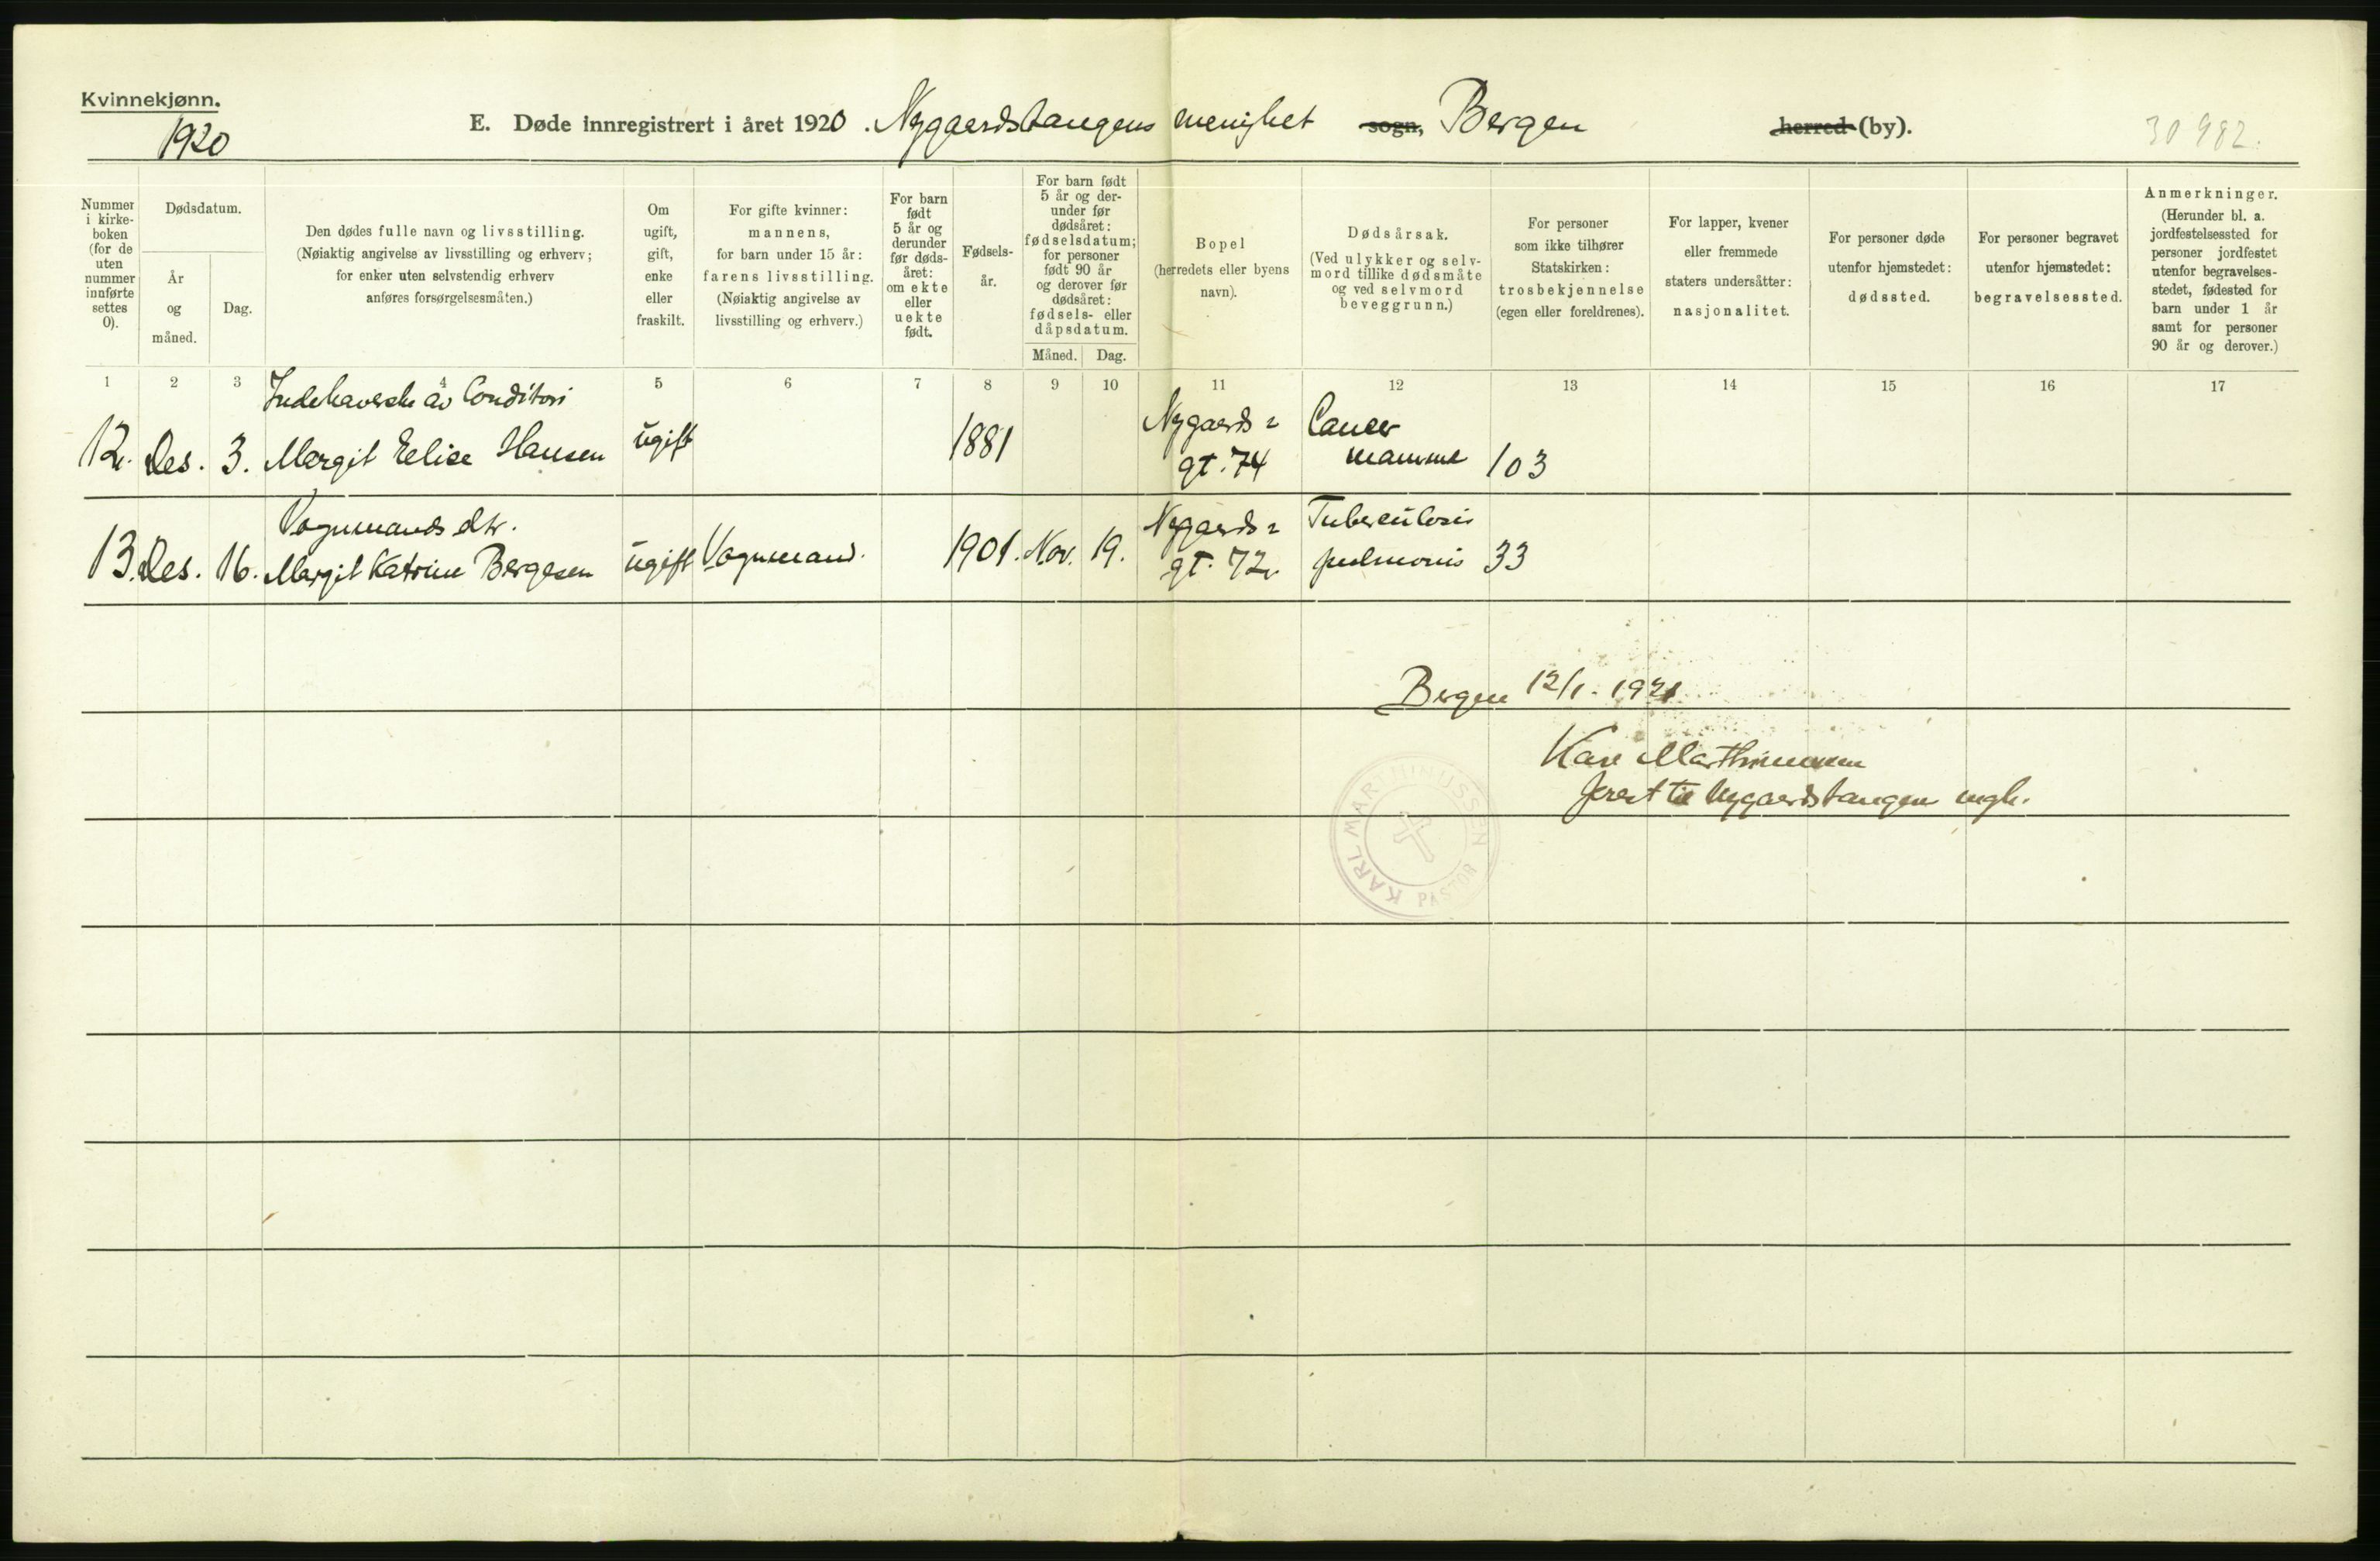 Kvinnekjønn.
1920
E. Døde innregistrert i året 1920. Nygaardstangens menighet sogn, Bergen herred (by).
30982.
Nummer i kirke-boken (for de uten nummer innførte settes 0).
Dødsdatum.
År og måned.
Dag.
Den dødes fulle navn og livsstilling.
(Nøiaktig angivelse av livsstilling og erhverv;
for enker uten selvstendig erhverv
anføres forsørgelsesmåten.)
Om
ugift,
gift,
enke
eller
fraskilt.
For gifte kvinner:
mannens,
for barn under 15 år:
farens livsstilling.
(Nøiaktig angivelse av
livsstilling og erhverv.)
For barn
født
5 år og
derunder
før døds-
året:
om ekte
eller
uekte
født.
Fødsels-
år.
For barn født
5 år og der-
under før
dødsåret:
fødselsdatum;
for personer
født 90 år
og derover før
dødsåret:
fødsels- eller
dåpsdatum.
Måned. Dag.
Bopel
(herredets eller byens
navn).
Dødsårsak.
(Ved ulykker og selv-
mord tillike dødsmåte
og ved selvmord
beveggrunn.)
For personer
som ikke tilhører
Statskirken:
trosbekjennelse
(egen eller foreldrenes).
For lapper, kvener
eller fremmede
staters undersåtter:
nasjonalitet.
For personer døde
utenfor hjemstedet:
dødssted.
For personer begravet
utenfor hjemstedet:
begravelsessted.
Anmerkninger.
(Herunder bl. a.
jordfestelsessted for
personer jordfestet
utenfor begravelses-
stedet, fødested for
barn under 1 år
samt for personer
90 år og derover.)
1 2 3 4 5 6 7 8 9 10 11 12 13 14 15 16 17
Indehaverske av Conditori
12. Des. 3. Margit Eelise Hansen ugift 1881 Nygaards-
gt. 74 Cancer
mamme 103
Vognmands dtr.
13. Des. 16. Margit Katrine Bergesen ugift Vognmand. 1901. Nov. 19. Nygaards-
gt. 72. Tuberculosis
pulmonis 33
Bergen 12/1. 1921
Karl Marthinussen
prest til Nygaardstangen mgh.
KARL MARTHINUSSEN
PASTOR